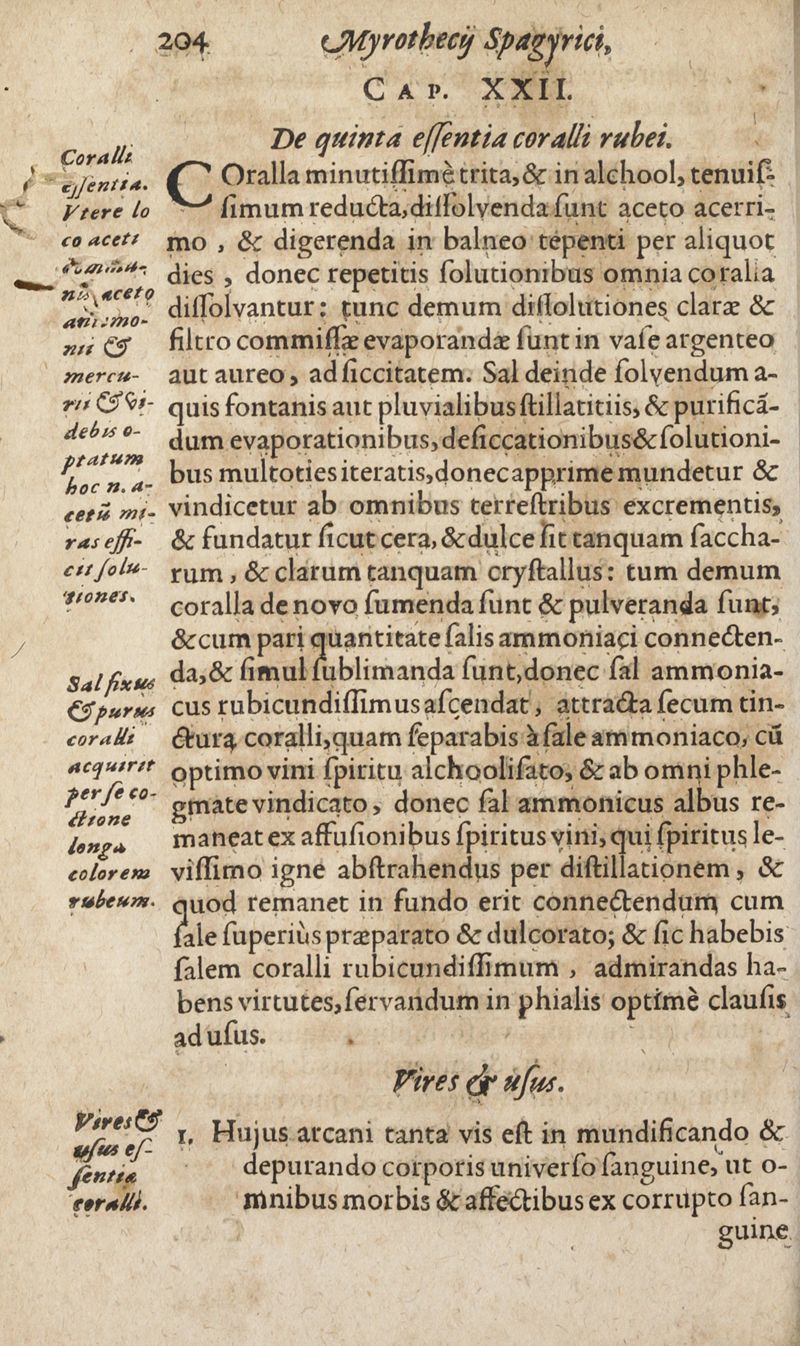 204 Myrothecij Spagyrici,
CAP. XXII.
De quinta eſſentia coralli rubei.
COralla minutiſſimè trita,& in alchool, tenuiſ-
ſimum reducta,diſſolvenda ſunt aceto acerri-
mo , & digerenda in balneo tepenti per aliquot
dies , donec repetitis ſolutionibus omnia coralia
diſſolvantur: tunc demum diſſolutiones claræ &
filtro commiſſæ evaporandæ ſunt in vaſe argenteo
aut aureo, ad ſiccitatem. Sal deinde ſolvendum a-
quis fontanis aut pluvialibus ſtillatitiis, & purificã-
dum evaporationibus,deſiccationibus&ſolutioni-
bus multoties iteratis,donec apprime mundetur &
vindicetur ab omnibus terreſtribus excrementis,
& fundatur ſicut cera, &dulce ſit tanquam ſaccha-
rum , & clarum tanquam cryſtallus: tum demum
coralla de novo ſumenda ſunt & pulveranda ſunt,
&cum pari quantitate ſalis ammoniaci connecten-
da,& ſimul ſublimanda ſunt,donec ſal ammonia-
cus rubicundiſſimus aſcendat, attracta ſecum tin-
ctura coralli,quam ſeparabis à ſale ammoniaco, cũ
optimo vini ſpiritu alchooliſato, & ab omni phle-
gmate vindicato, donec ſal ammonicus albus re-
maneat ex affuſionibus ſpiritus vini, qui ſpiritus le-
viſſimo igne abſtrahendus per diſtillationem, &
quod remanet in fundo erit connectendum cum
ſale ſuperiùs præparato & dulcorato; & ſic habebis
ſalem coralli rubicundiſſimum , admirandas ha-
bens virtutes,ſervandum in phialis optimè clauſis
ad uſus.
Vires & uſus.
1. Hujus arcani tanta vis eſt in mundificando &
depurando corporis univerſo ſanguine, ut o-
mnibus morbis & affectibus ex corrupto ſan-
guine
Coralli
eſſentia.
Vtere lo
co aceti
aceto
antimo-
nii &
mercu-
rii & vi-
debis o-
ptatum
hoc n. a-
cetũ mi-
ras effi-
cit ſolu-
tiones.
Sal fixus
& purus
coralli
acquirit
per ſe co-
ctione
longa
colorem
rubeum.
Vires &
uſus eſ-
ſentia
coralli.